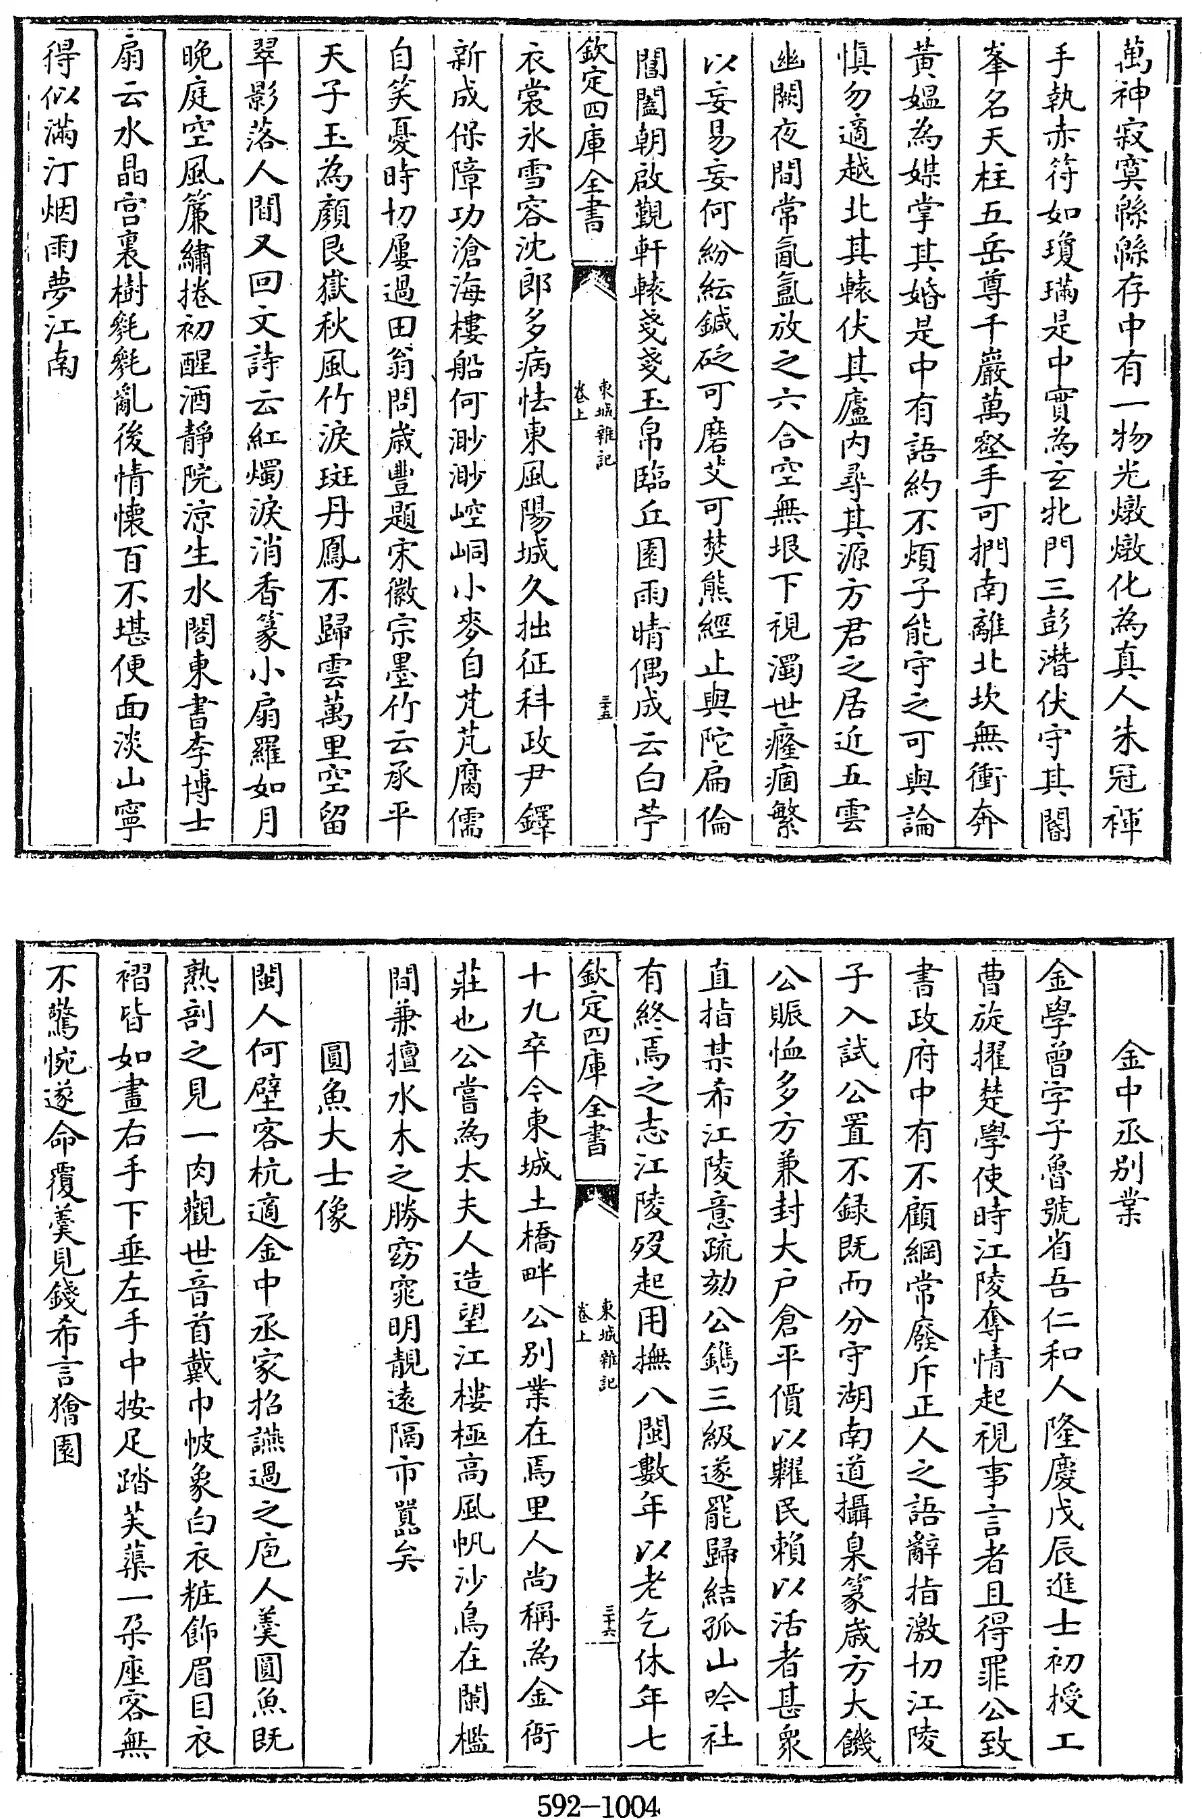 萬神寂寞緜緜存中有一物光燉燉化為真人朱冠褌
手執赤符如瓊璊是中實為玄牝門三彭潛伏守其閽
峯名天柱五岳尊千巖萬壑手可捫南離北坎無衝奔
黃媼為媒掌其婚是中有語約不煩子能守之可與論
慎勿適越北其轅伏其廬內尋其源方君之居近五雲
幽闕夜間常氤氳放之六合空無垠下視濁世癃痼繁
以妄易妄何紛紜鍼砭可磨艾可焚熊經止與陀扁倫
閶闔朝啟覲軒轅戔戔玉帛臨丘園雨晴偶成云白苧
欽定四庫全書
東城雜記
卷上
三十五
衣裳氷雪容沈郎多病怯東風陽城久拙征科政尹鐸
新成保障功滄海樓船何渺渺崆峒小麥自芃芃腐儒
自笑憂時切屢過田翁問歲豐題宋徽宗墨竹云承平
天子玉為顏艮嶽秋風竹淚斑丹鳳不歸雲萬里空留
翠影落人間又回文詩云紅燭淚消香篆小扇羅如月
晚庭空風簾繡捲初醒酒靜院涼生水閣東書李博士
扇云水晶宮裏樹毿毿亂後情懷百不堪便面淡山寧
得似滿汀烟雨夢江南
金中丞別業
金學曾字子魯號省吾仁和人隆慶戊辰進士初授工
曹旋擢楚學使時江陵奪情起視事言者且得罪公致
書政府中有不顧綱常廢斥正人之語辭指激切江陵
子入試公置不録既而分守湖南道攝臬篆歲方大饑
公賑恤多方兼封大户倉平價以糶民賴以活者甚衆
直指某希江陵意疏劾公鐫三級遂罷歸結孤山吟社
有終焉之志江陵歿起用撫八閩數年以老乞休年七
欽定四庫全書
東城雜記
卷上
三十六
十九卒今東城土橋畔公別業在焉里人尚稱為金衙
莊也公嘗為太夫人造望江樓極高風帆沙鳥在闌檻
間兼擅水木之勝窈窕明靚遠隔市囂矣
圓魚大士像
閩人何壁客杭適金中丞家招讌過之庖人羮圓魚既
熟剖之見一肉觀世音首戴巾帔象白衣粧飾眉目衣
褶皆如畫右手下垂左手中按足踏芙蕖一朶座客無
不驚惋遂命覆羮見錢希言獪園
592-1004